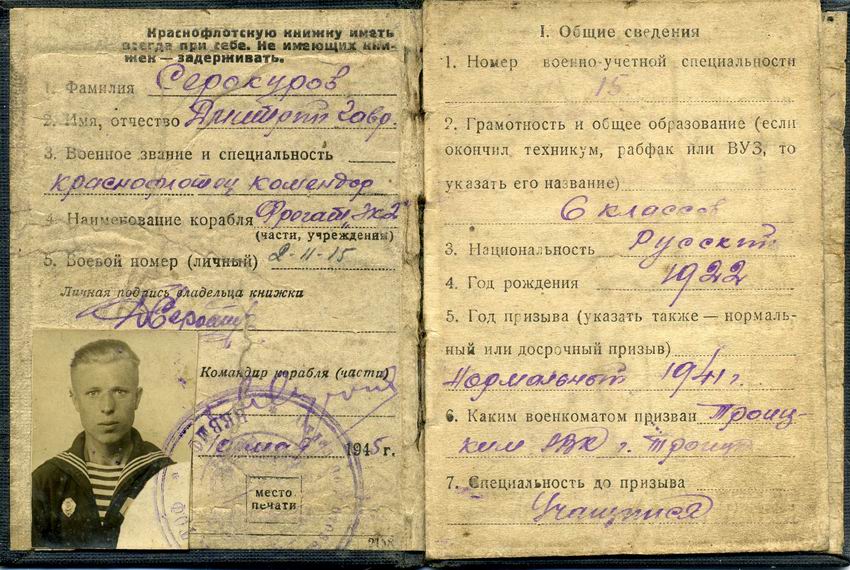 Краснофлотскую книжку иметь
всегда при себе. Не имеющих кни-
жек — задерживать.
1. Фамилия Серокуров
2. Имя, отчество Дмитрий Гавр.
3. Военное звание и специальность
краснофлотец комендор
4. Наименование корабля Фрегат „ЭК2"
(части, учреждения)
5. Боевой номер (личный) 2-11-15
Личная подпись владельца книжки
Командир корабля (части)
мая 1945 г.
место
печати
I. Общие сведения
1. Номер военно-учетной специальности
15
2. Грамотность и общее образование (если
окончил техникум, рабфак или ВУЗ, то
указать его название)
6 классов
3. Национальность Русский
4. Год рождения 1922
5. Год призыва (указать также — нормаль-
ный или досрочный призыв)
Нормальный 1941 г.
6. Каким военкоматом призван Троиц-
ким РВК г. Троицк
7. Специальность до призыва
Учащийся